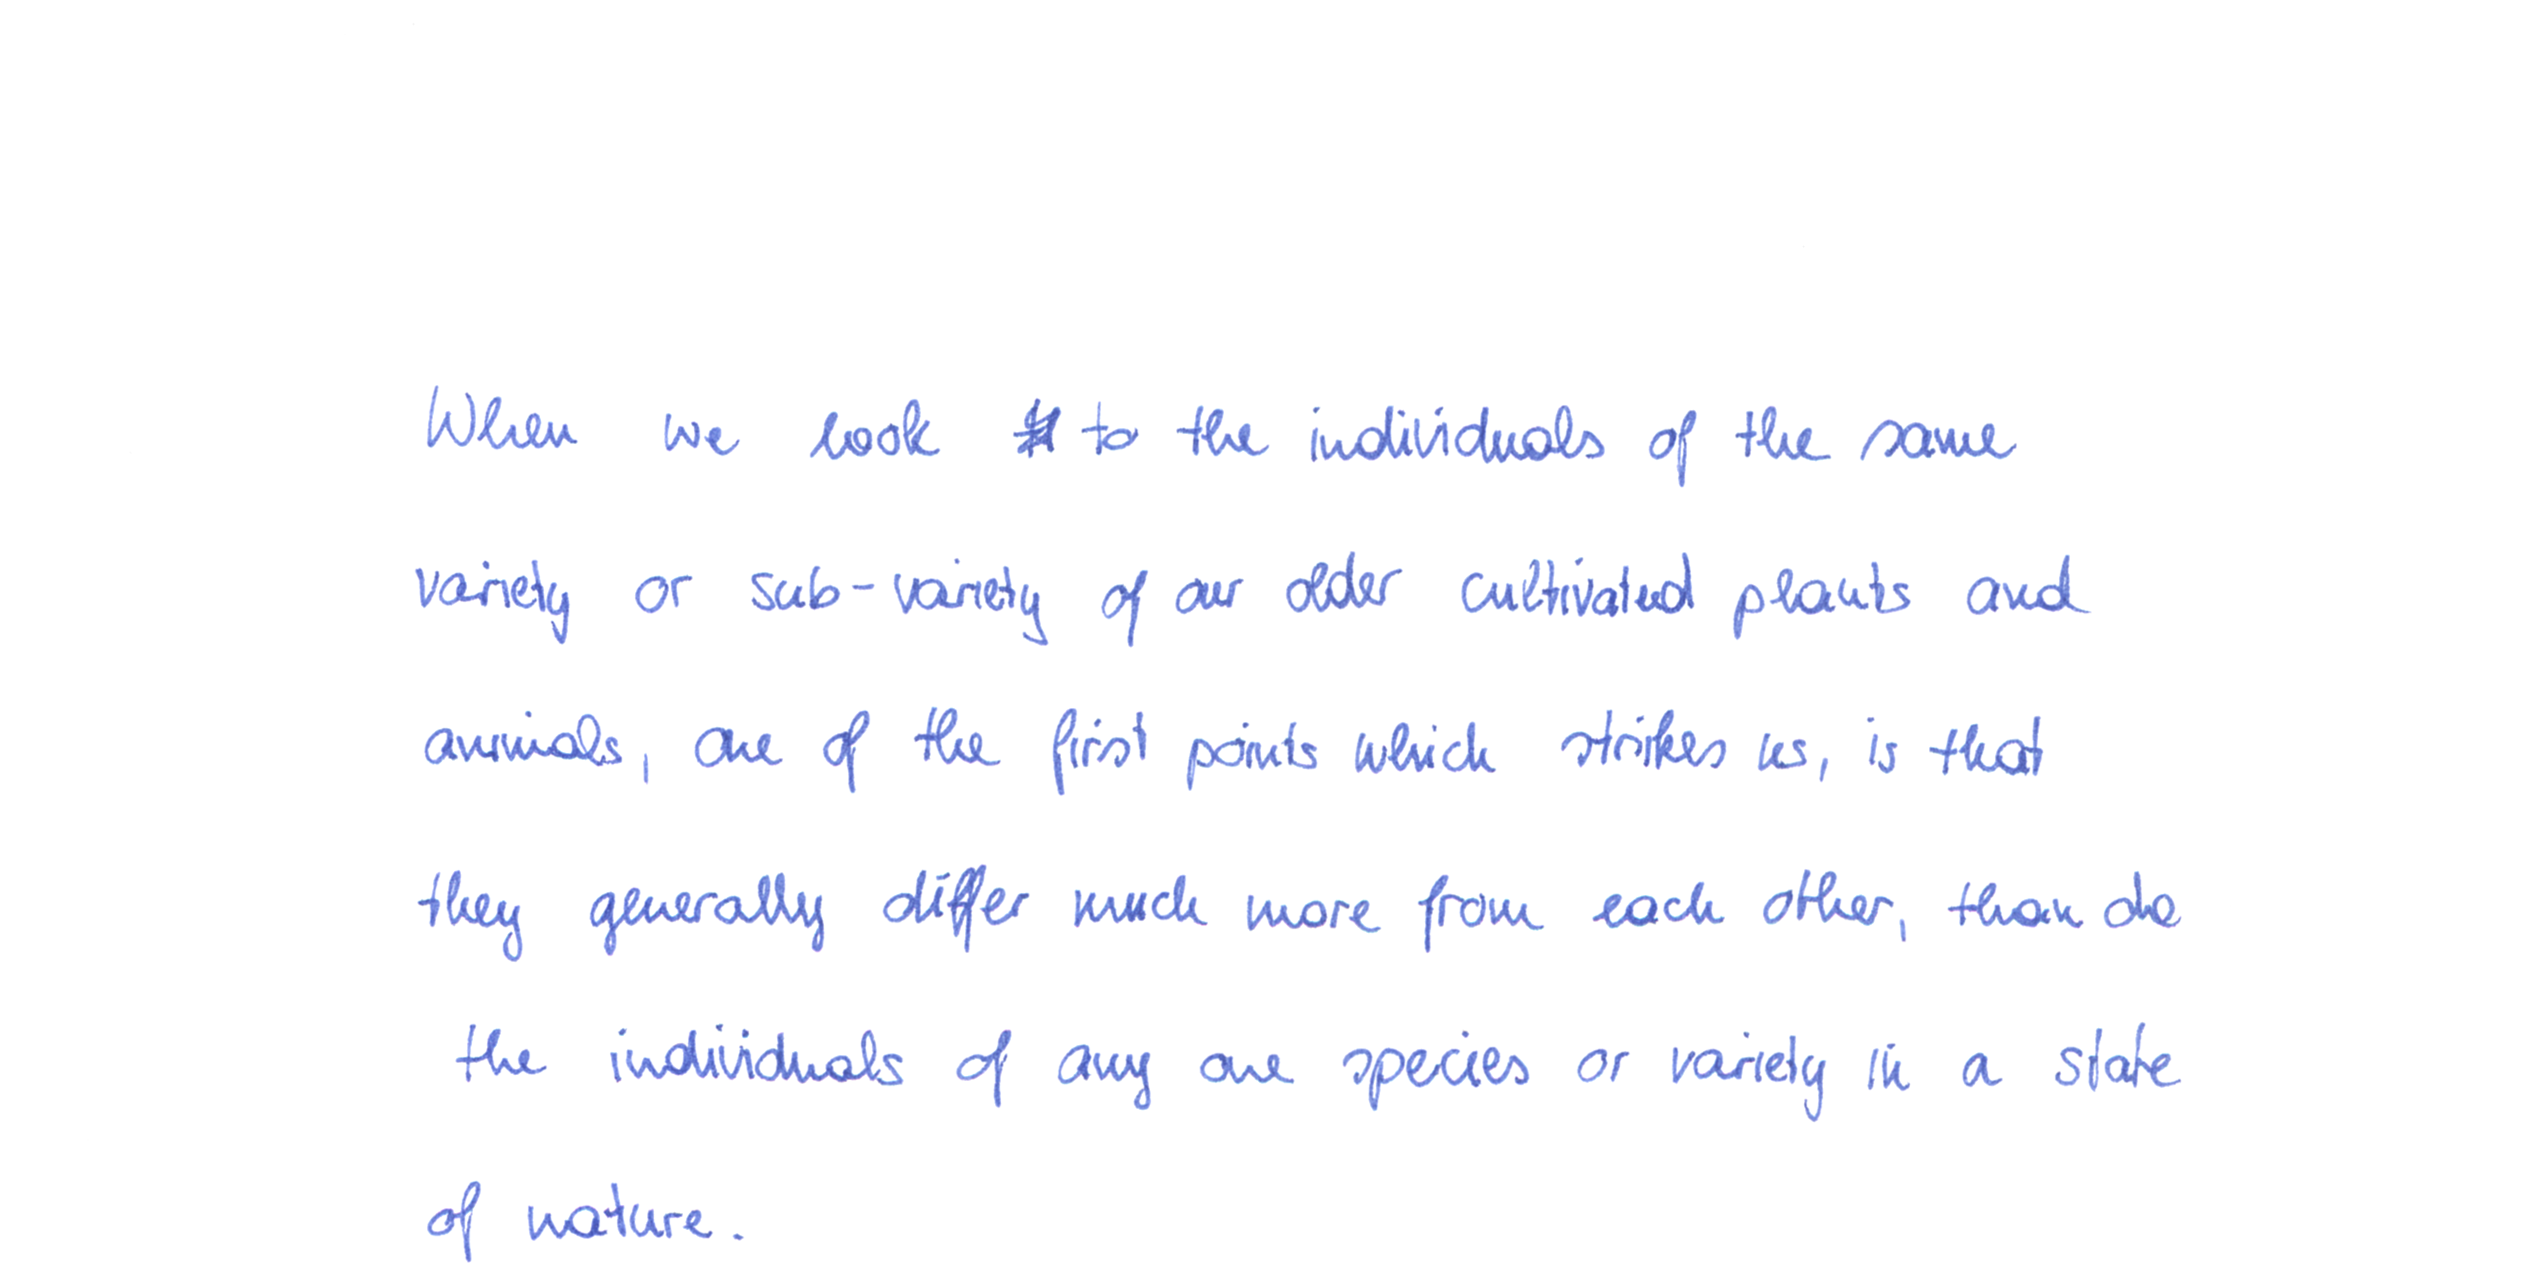 When we look to the individuals of the same
variety or sub-variety of our older cultivated plants and
animals, one of the first points which strikes us, is that
they generally differ much more from each other, than do
the individuals of any one species or variety in a state
of nature.